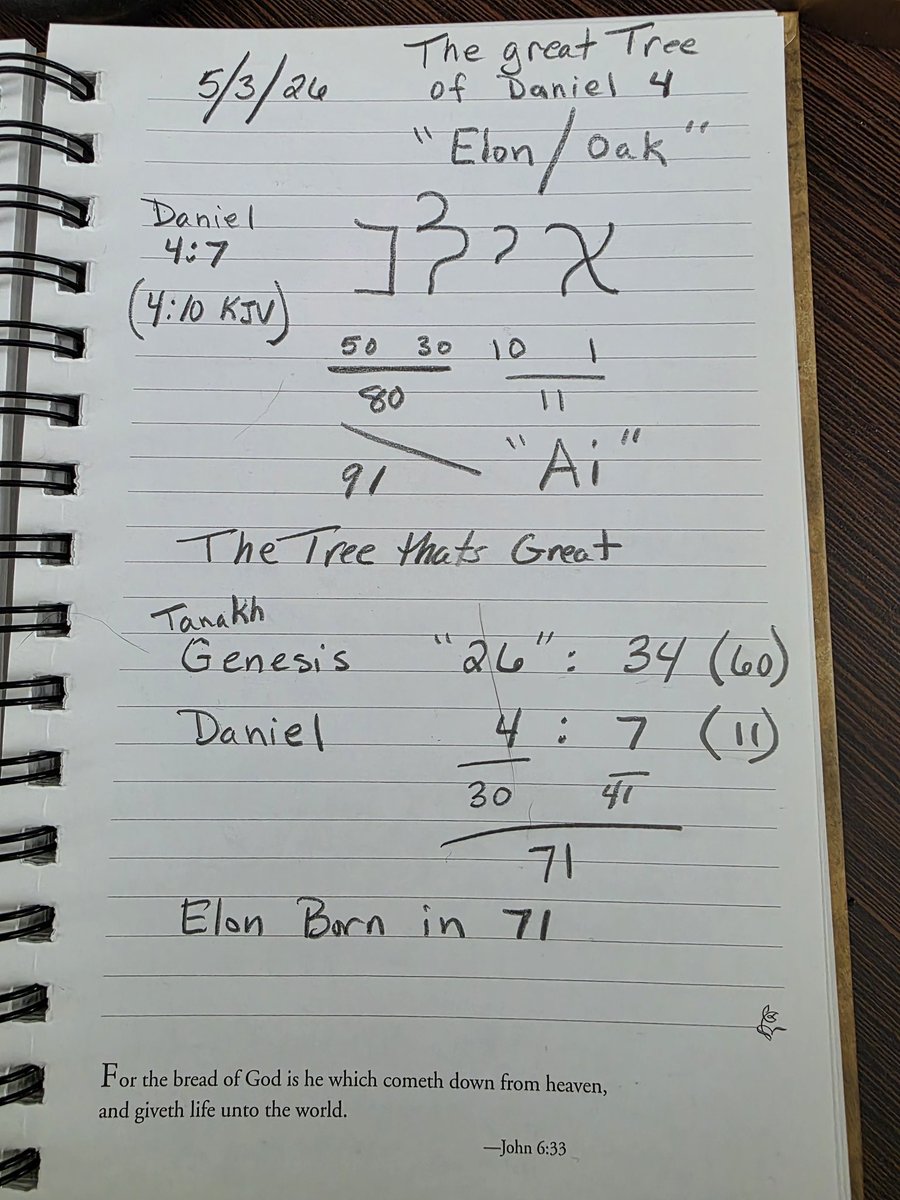 5/3/26
The great Tree
of Daniel 4
"Elon / Oak"
Daniel
4:7
(4:10 KJV)
אילנ
50 30 10 1
80 11
91 "Ai"
The Tree thats Great
Tanakh
Genesis "26": 34 (60)
Daniel 4 : 7 (11)
30 41
71
Elon Born in 71
For the bread of God is he which cometh down from heaven,
and giveth life unto the world.
—John 6:33